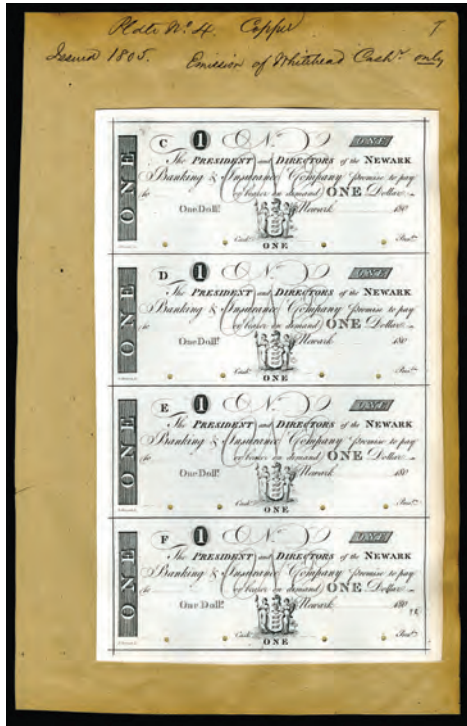 Plate Nº 4. Copper 7
Issued 1805. Emission of Whitehead Cashr only
ONE
C 1 Nº ONE
The PRESIDENT and DIRECTORS of the NEWARK
Banking & Insurance Company promise to pay
to or bearer on demand ONE Dollar
One Dollr. Newark 180
Cashr. Presdt.
ONE
ONE
D 1 Nº ONE
The PRESIDENT and DIRECTORS of the NEWARK
Banking & Insurance Company promise to pay
to or bearer on demand ONE Dollar
One Dollr. Newark 180
Cashr. Presdt.
ONE
ONE
E 1 Nº ONE
The PRESIDENT and DIRECTORS of the NEWARK
Banking & Insurance Company promise to pay
to or bearer on demand ONE Dollar
One Dollr. Newark 180
Cashr. Presdt.
ONE
ONE
F 1 Nº ONE
The PRESIDENT and DIRECTORS of the NEWARK
Banking & Insurance Company promise to pay
to or bearer on demand ONE Dollar
One Dollr. Newark 180
Cashr. Presdt.
ONE